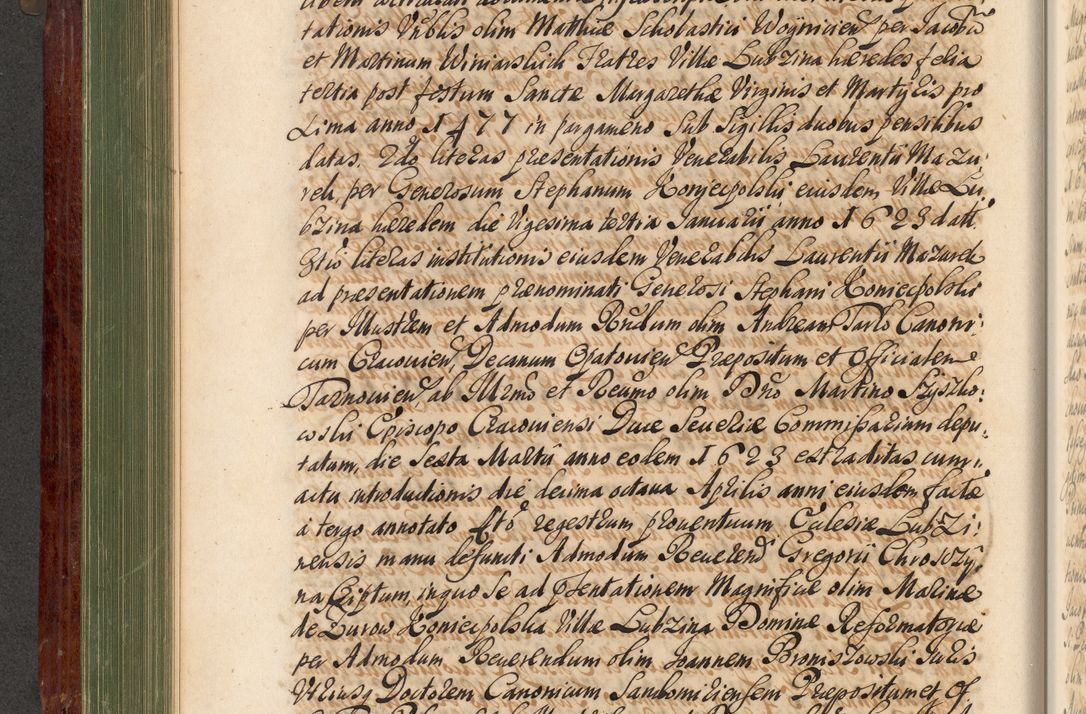 tationis Vrblis olim Mathiæ Scholastici Woyniciens per Jacobũ
et Martinum Winiarskich Fratres Villæ Lubzina hæredes felia
tertia post festum Sanctæ Margarethæ Virginis et Martyris pro
xima anno 1477 in pargameno sub Sigillis duobus pensilibus
datas. 2do literas præsentationis Venerabilis Laurentii Mazu
rek per Generosum Stephanum Koniecpolski eiusdem Villæ Lu
bzina hæredem die Vigesima tertia Januarii anno 1623 datt
3tiò literas institutionis eiusdem Venerabilis Laurentii Mazurek
ad præsentationem prænominati Generosi Stephani Koniecpolski
per Illustrem et Admodum Rñdum olim Andream Tarlo Canoni:
cum Cracouien, Decanum Opatouien Præpositum et Officialem
Tarnouien ab Illrmo et Reumo olim Dño Martino Szyszko:
wski Episcopo Cracouiensi Duce Seueriæ Commissarium depu
tatum, die Sexta Martii anno eodem 1623 extraditas cum
actu introductionis die decima octaua Aprilis anni eiusdem facta
à tergo annotato 4tò regestrum prouentuum Ecclesiæ Lubzi:
nensis manu defuncti Admodum Reuerend Gregorii Chroszy
na scriptum in quo se ad præsentationem Magnificæ olim Marinæ
de Zurow Koniecpolska Villæ Lubzina Dominæ Reformatoriæ
per Admodum Reuerendum olim Joannem Broniszowski Juris
Vtriusq Doctorem Canonicum Sandomiriensem Præpositum et Of